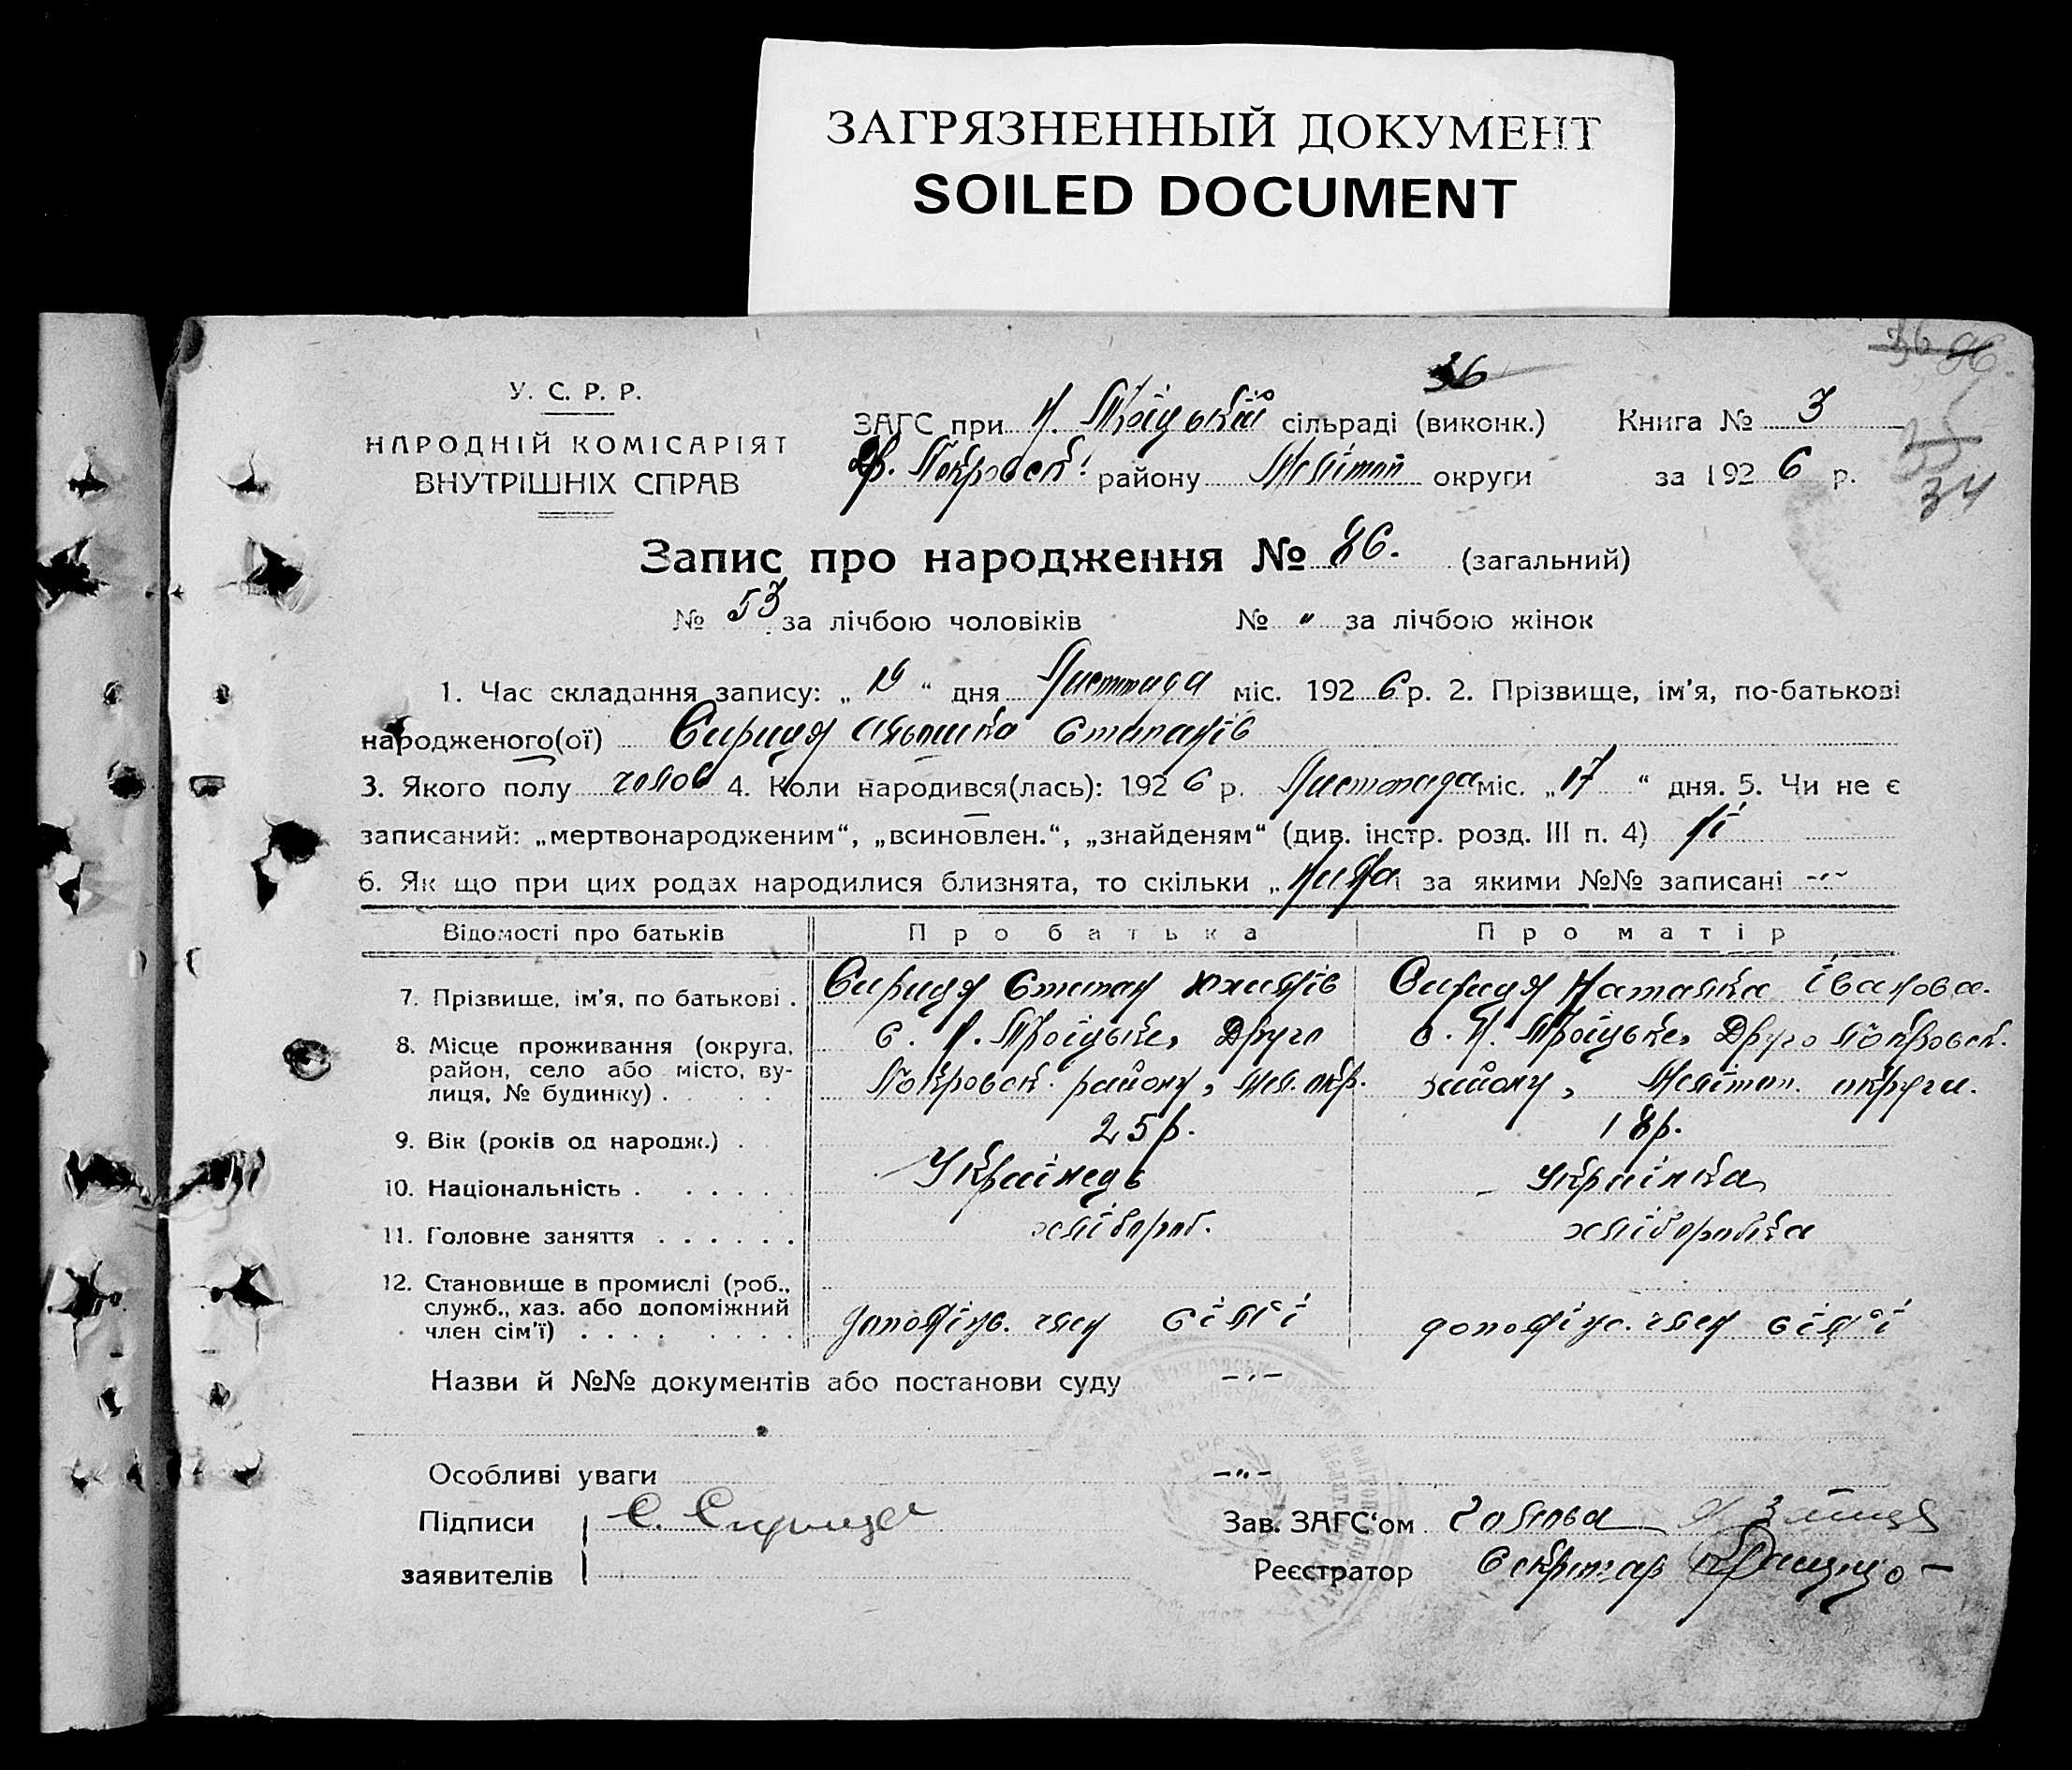 ЗАГРЯЗНЕННЫЙ ДОКУМЕНТ
SOILED DOCUMENT
36
36 86
У. С. Р. Р.
НАРОДНІЙ КОМІСАРІЯТ
ВНУТРІШНІХ СПРАВ
ЗАГС при Н. Троїцькій сільраді (виконк.) Книга № 3
Др. Покровськ. району Меліт. округи за 1926 р.
34
Запис про народження № 86. (загальний)
№ 53 за лічбою чоловіків № " за лічбою жінок
1. Час складання запису: „19“ дня Листопада міс. 1926 р. 2. Прізвище, ім'я, по-батькові
народженого(ої) Сириця Степанів
3. Якого полу чолов 4. Коли народився(лась): 1926 р. Листопада міс. „17“ дня. 5. Чи не є
записаний: „мертвонародженим“, „всиновлен.“, „знайденям“ (див. інстр. розд. III п. 4) Ні
6. Як що при цих родах народилися близнята, то скільки „ Нема за якими №№ записані -"-
Відомості про батьків Про батька Про матір
7. Прізвище, ім'я, по батькові . Сириця Степан Сириця Наталка Іванова.
8. Місце проживання (округа, район, село або місто, вулиця, № будинку) . с. Н. Троїцьке, Друго Покровськ. району, Мел. окр. с. Н. Троїцьке, Друго Покровськ. району, Мелітоп. округи.
9. Вік (років од народж.) . 25 р. 18 р.
10. Національність . Українець Українка
11. Головне заняття . хлібороб. хлібороб��ка
12. Становище в промислі (роб., служб., хаз. або допоміжний член сім'ї) . допоміжн. член сім'ї допоміжн. член сім'ї
Назви й №№ документів або постанови суду -"-
Особливі уваги -"-
Підписи С. Сириця Зав. ЗАГС'ом Голова
заявителів Реєстратор Секретар